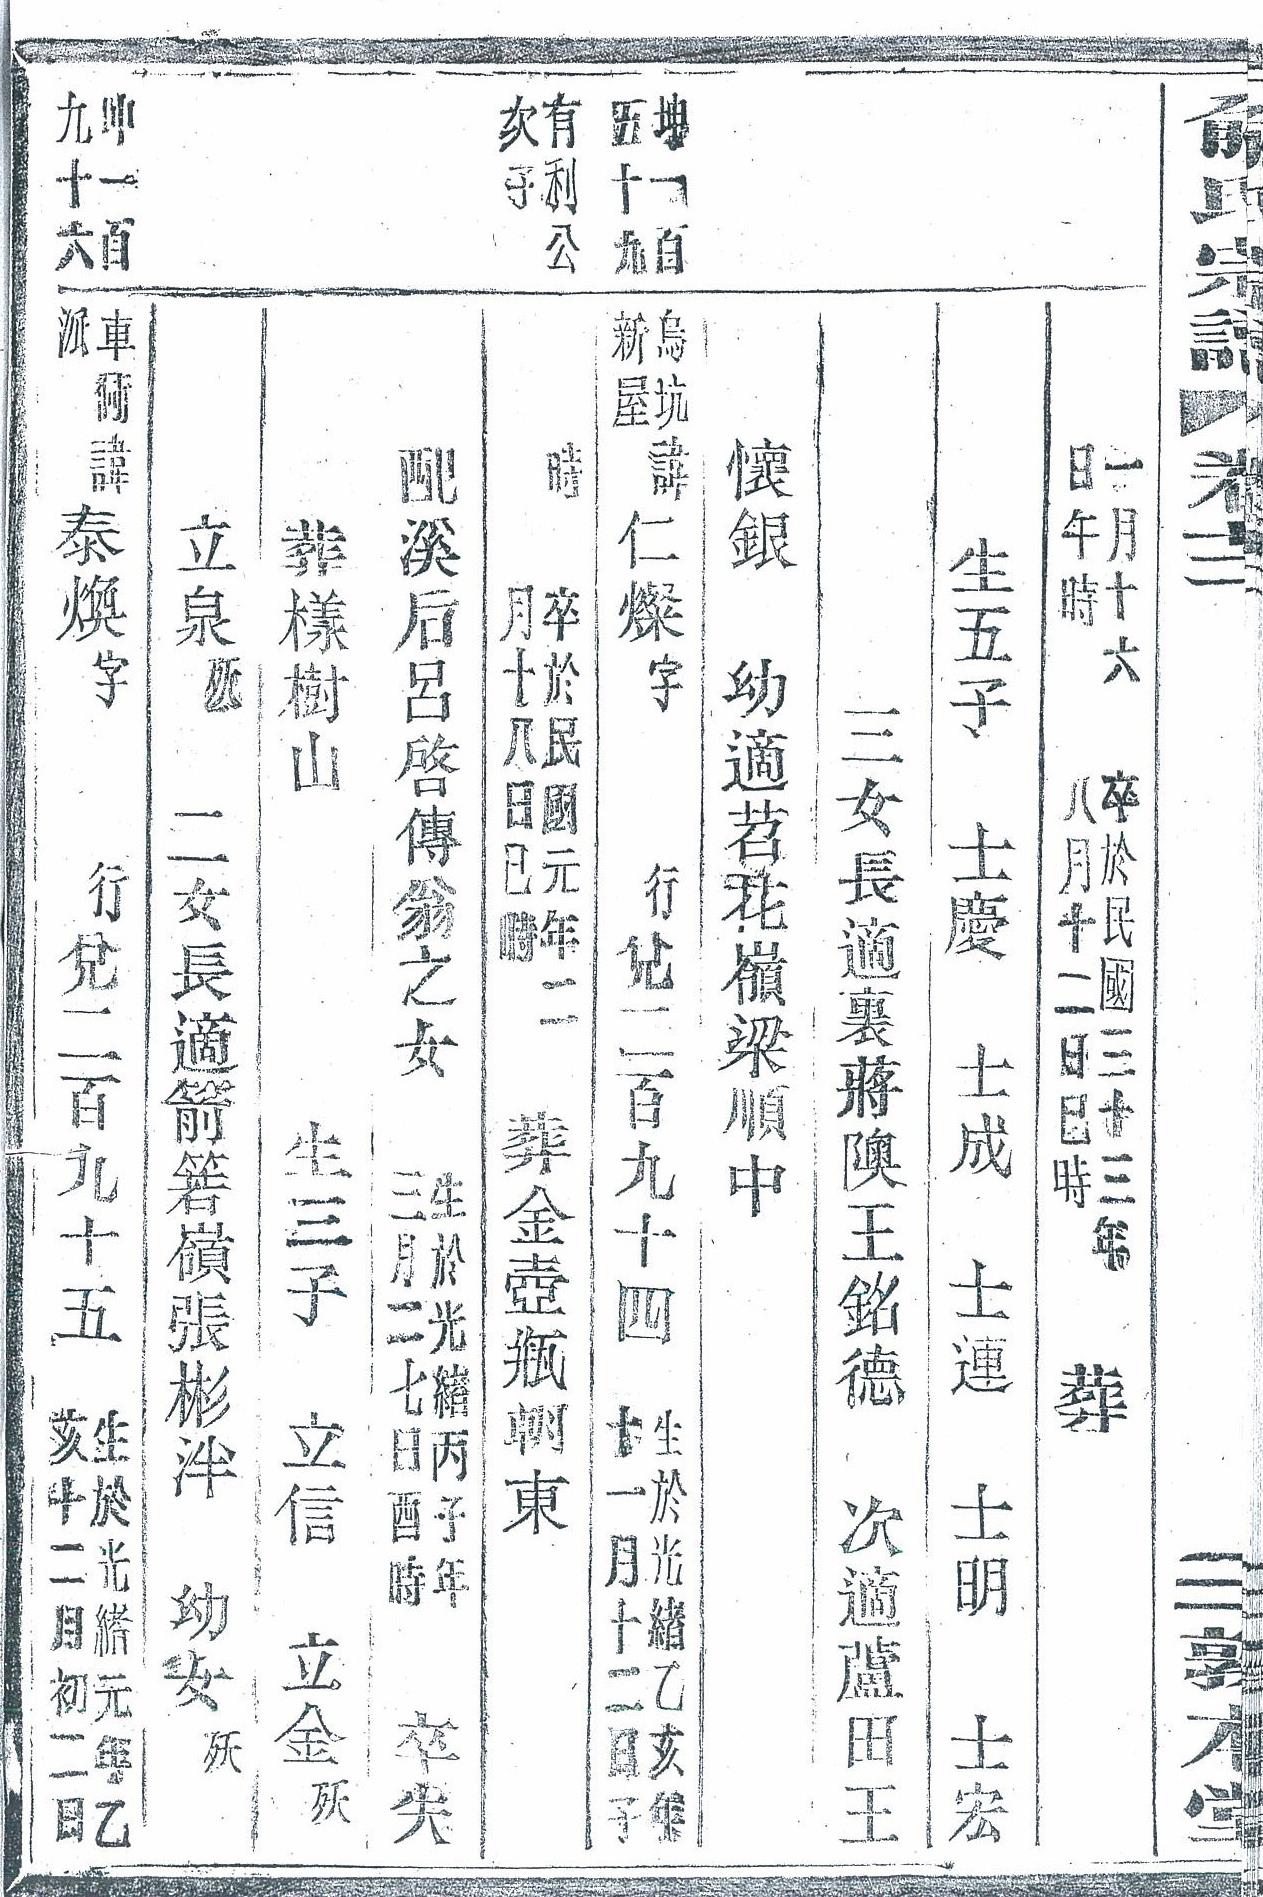 俞氏宗譜 卷三 三 敦本堂
一月十六
日午時
卒於民國三十三年
八月十二日巳時
葬
生五子 士慶 士成 士連 士明 士宏
三女長適裏蔣隩王銘德 次適蘆田王
懷銀 幼適苕花嶺梁順中
坤一百
五十九
烏坑
新屋
諱仁燦字 行兌二百九十四
生於光緒乙亥年
十一月十二日子
有利公
次子
時
卒於民國元年二
月十八日巳時
葬金壺瓶朝東
配溪后呂啓傳翁之女
生於光緒丙子年
三月二七日酉時
卒失
葬樣樹山 生三子 立信 立金殀
立泉殀 二女長適箭箬嶺張彬泮 幼女殀
坤一百
九十六
車衕
派
諱泰煥字 行兌二百九十五
生於光緒元年乙
亥十二月初二日